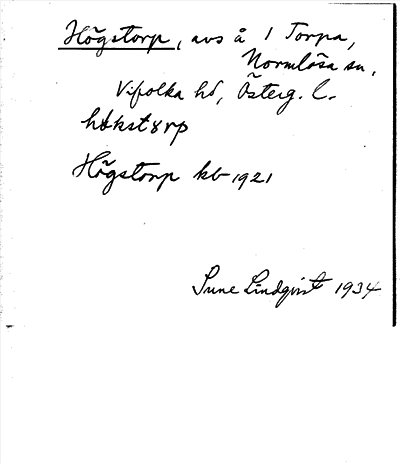 Högstorp, avs å 1 Torpa,
Normlösa sn,
Vifolka hd, Österg. l.
hökstørp
Högstorp kb 1921
Sune Lindqvist 1934